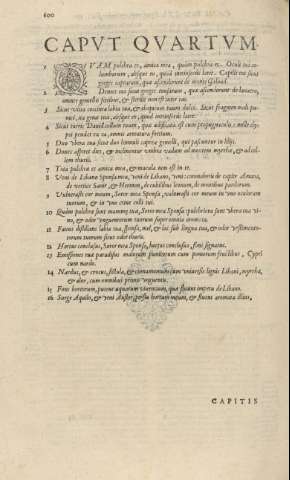 600
CAPVT QVARTVM.
1 QVAM pulchra es, amica mea, quàm pulchra es. Oculi tui co-
lumbarum, absque eo, quod intrinsecùs latet. Capilli tui sicut
greges caprarum, quæ ascenderunt de monte Galaad.
2 Dentes tui sicut greges tonsarum, quæ ascenderunt de lauacro,
omnes gemellis fœtibus, & sterilis non est inter eas.
3 Sicut vitta coccinea labia tua, & eloquium tuum dulce. Sicut fragmen mali puni-
ci, ita genæ tuæ, absque eo, quod intrinsecùs latet.
4 Sicut turris Dauid collum tuum, quæ ædificata est cum propugnaculis: mille clyp-
pei pendent ex ea, omnis armatura fortium.
5 Duo vbera tua sicut duo hinnuli capreæ gemelli, qui pascuntur in lilijs.
6 Donec aspiret dies, & inclinentur vmbræ vadam ad montem myrrhæ, & ad col-
lem thuris.
7 Tota pulchra es amica mea, & macula non est in te.
8 Veni de Libano Sponsa mea, veni de Libano, veni: coronaberis de capite Amana,
de vertice Sanir, & Hermon, de cubilibus leonum, de montibus pardorum.
9 Vulnerasti cor meum, Soror mea Sponsa, vulnerasti cor meum in vno oculorum
tuorum, & in vno crine colli tui.
10 Quàm pulchræ sunt mammæ tuæ, Soror mea Sponsa: pulchriora sunt vbera tua vi-
no, & odor vnguentorum tuorum super omnia aromata.
11 Fauus distillans labia tua, sponsa, mel, & lac sub lingua tua, & odor vestimento-
rum tuorum sicut odor thuris.
12 Hortus conclusus, Soror mea Sponsa, hortus conclusus, fons signatus.
13 Emissiones tuæ paradisus malorum punicorum cum pomorum fructibus, Cypri
cum nardo.
14 Nardus, & crocus, fistula, & cinnamomum cum vniuersis lignis Libani, myrrha,
& aloë, cum omnibus primis vnguentis.
15 Fons hortorum, puteus aquarum viuentium, quæ fluunt impetu de Libano.
16 Surge Aquilo, & veni Auster, perfla hortum meum, & fluent aromata illius.
CAPITIS